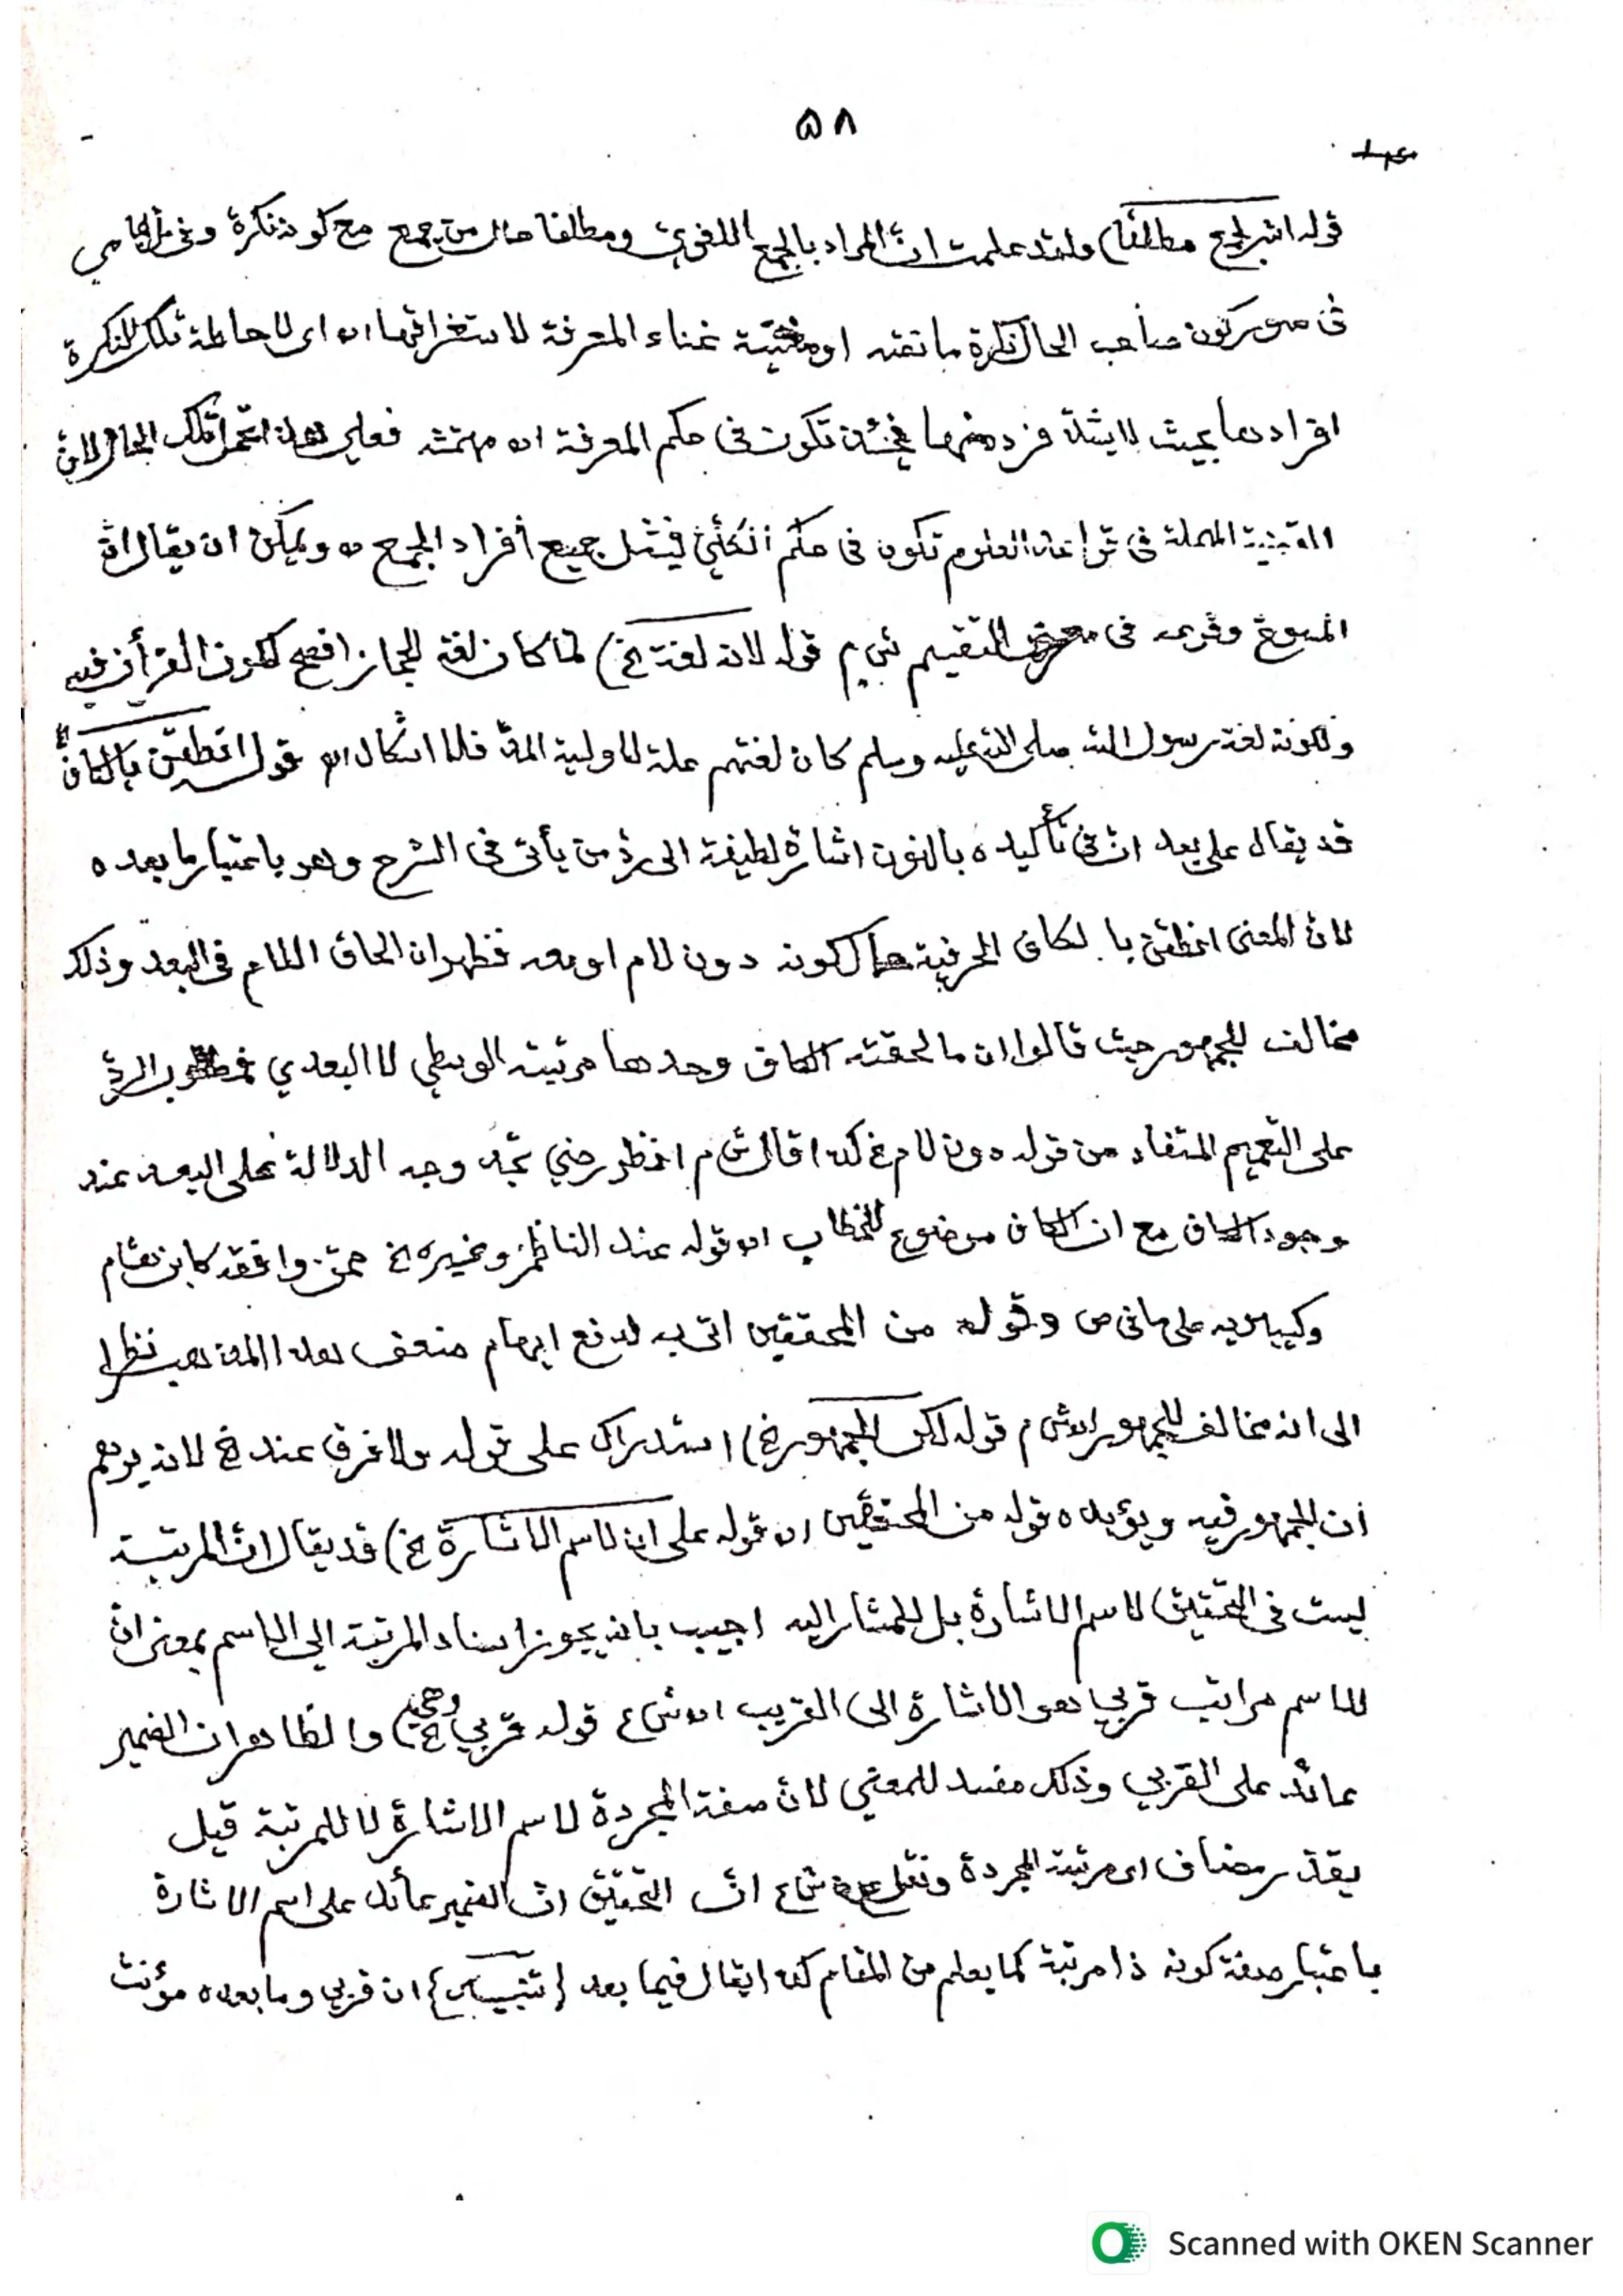 ٥٨
قوله اشر لجمع مطلقا) ولقد علمت انّ المراد بالجمع اللغوي ومطلقا حال من جمع مع كونه نكرة وفى الجامي
فى صور كون صاحب الحال نكرة ما نصه او مغنية غناء المعرفة لاستغراقها اه اى لاحاطة تلك النكرة
افرادها بحيث لا يشذّ فرد منها فحينئذ تكون فى حكم المعرفة اه مهمّشه فعلى هذا تلك الحال لانّ
القضية المهملة فى قواعد العلوم تكون فى حكم الكلّيّ فيشمل جميع أفراد الجمع ويمكن ان يقال انّ
المسوغ وقوعه فى معرض التقسيم ش م قوله لانه لغة الخ) لمّا كان لغة الحجاز افصح لكون القرأن فيه
ولكونه لغة رسول الله صلى الله عليه وسلم كان لغتهم علة لاولية المدّ فلا اشكال اه قوله انطقن بالكاف
قد يقال على بعد انّ فى تأكيده بالنون اشارة لطيفة الى ردّ من يأتى فى الشرح وهو باعتبار ما بعده
لانّ المعنى انطقن با لكاف الحرفية حال كونه دون لام او معه فظهر ان الحاق اللام فى البعد وذلك
مخالف للجمهور حيث قالوا ان ما لحقته الكاف وحدها مرتبته الوسطي لا البعدي الردّ
على التعميم المستفاد من قوله دون لام هكذا قال ش م انظر حتي تجد وجه الدلالة على البعد عند
وجود الكاف مع ان الكاف موضوع للخطاب اه قوله عند الناظم وغيره الخ ممّن وافقه كابن هشام
وكسيبويه على ما فى ص وقوله من المحققين اتى به لدفع ايهام ضعف هذا المذهب نظرا
الى انه مخالف للجمهور اه ش م قوله لكن الجمهور الخ) استدراك على قوله ولا فرق عند الخ لانه يوهم
أن الجمهور فيه ويؤيده قوله من المحققين اه قوله على ان لاسم الاشارة الخ) قد يقال انّ المرتبة
ليست فى التحقيق لاسم الاشارة بل للمشار اليه اجيب بانه يجوز اسناد المرتبة الى الاسم بمعنى انّ
للاسم مراتب قربي هو الاشارة الى القريب اه ش ع قوله قربي وهي الخ) والظاهر ان الضمير
عائد على القربي وذلك مفسد للمعني لانّ صفة المجردة لاسم الاشارة لا للمرتبة قيل
يقدّر مضاف اى مرتبة المجردة ونقل عن ش ع انّ التحقيق انّ الضمير عائد على اسم الاشارة
باعتبار صفة كونه ذا مرتبة كما يعلم من المقام كذا يقال فيما بعد {تنبيه} ان قربى وما بعده مؤنث
Scanned with OKEN Scanner